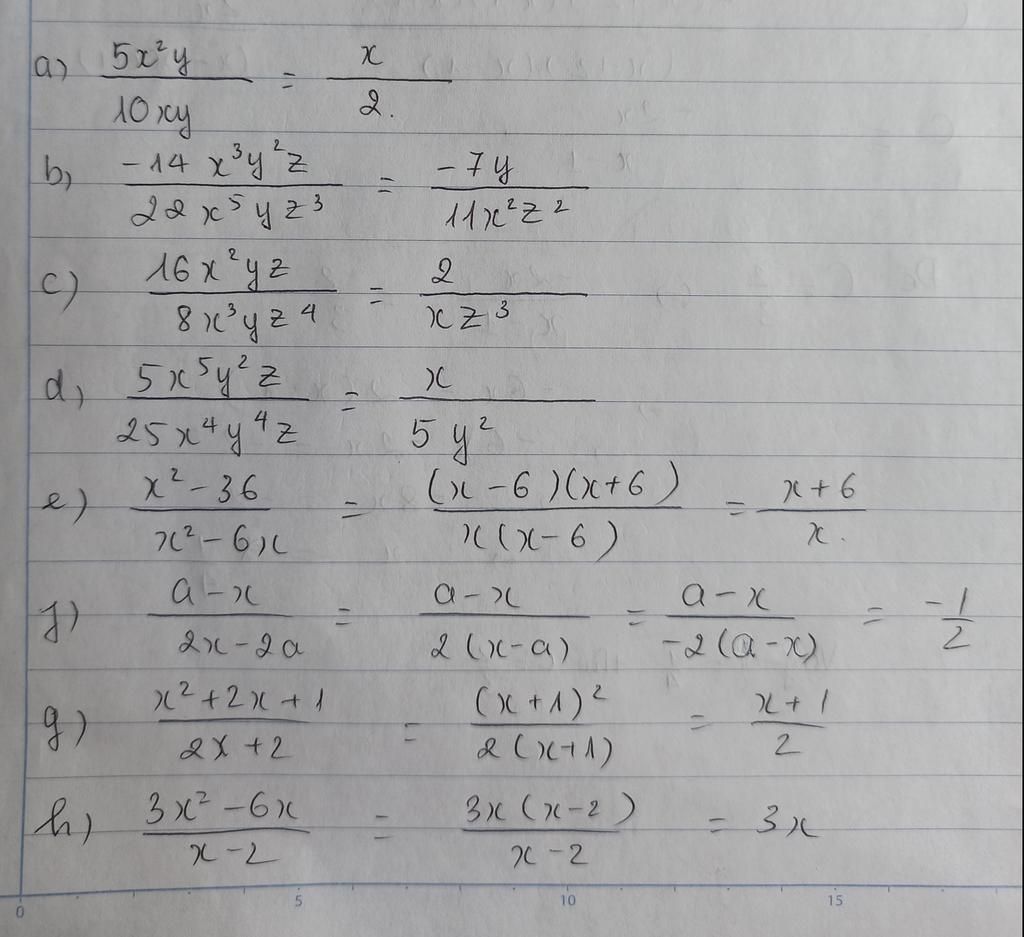 a) 5x²y / 10xy = x / 2.
b) -14 x³y²z / 22x⁵yz³ = -7y / 11x²z²
c) 16x²yz / 8x³yz⁴ = 2 / xz³
d) 5x⁵y²z / 25x⁴y⁴z = x / 5y²
e) x²-36 / x²-6x = (x-6)(x+6) / x(x-6) = x+6 / x.
f) a-x / 2x-2a = a-x / 2(x-a) = a-x / -2(a-x) = -1 / 2
g) x²+2x+1 / 2x+2 = (x+1)² / 2(x+1) = x+1 / 2
h) 3x²-6x / x-2 = 3x(x-2) / x-2 = 3x
0 5 10 15